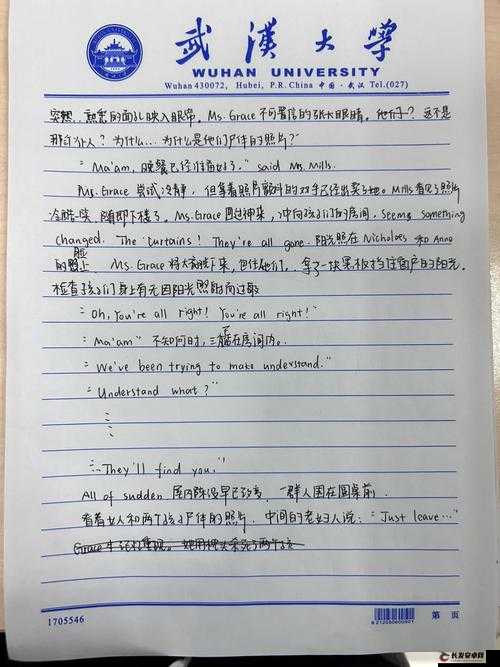 武漢大学
WUHAN UNIVERSITY
Wuhan 430072, Hubei, P.R. China 中国·武汉 Tel.(027)
突然，熟悉的面孔映入眼帘，Ms. Grace 不可置信的张大眼睛。他们…？这不是
那 仆人？为什么…为什么是他们尸体的照片？"
"Ma'am, 晚餐已经准备好了." said Ms. Mills.
Ms. Grace 尝试冷静，但拿着照片颤抖的双手已经出卖了她。Mills看见了照片
冷酷 笑，随即下楼了。Ms. Grace 回过神来，冲向孩子们的房间，seems something
changed. The curtains! They're all gone. 阳光照在 Nicholoes 和 Anne
的脸上 Ms. Grace 将大 脱下来，包住他们，拿了一块黑板挡住窗户的阳光，
检查孩子们身上有无因阳光照射而过敏
"Oh, You're all right! You're all right!"
"Ma'am" 不知何时，三 在房间内。
"We've been trying to make understand."
"Understand what?"
⋮
"…They'll find you."
All of sudden 屋内陈设早已改变，一群人围在圆桌前，
看着女人和两个孩子尸体的照片，中间的老妇人说："Just leave…"
1705546
第 页
长发安卓网